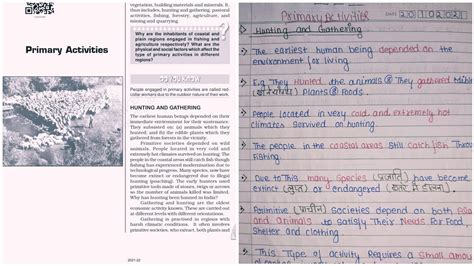 Primary Activities
2021-22
vegetation, building materials and minerals. It
thus includes, hunting and gathering, pastoral
activities, fishing, forestry, agriculture, and
mining and quarrying.
Why are the inhabitants of coastal and
plain regions engaged in fishing and
agriculture respectively? What are the
physical and social factors which affect the
type of primary activities in different
regions?
DO YOU KNOW
People engaged in primary activities are called red-
collar workers due to the outdoor nature of their work.
HUNTING AND GATHERING
The earliest human beings depended on their
immediate environment for their sustenance.
They subsisted on: (a) animals which they
hunted; and (b) the edible plants which they
gathered from forests in the vicinity.
Primitive societies depended on wild
animals. People located in very cold and
extremely hot climates survived on hunting. The
people in the coastal areas still catch fish though
fishing has experienced modernisation due to
technological progress. Many species, now have
become extinct or endangered due to illegal
hunting (poaching). The early hunters used
primitive tools made of stones, twigs or arrows
so the number of animals killed was limited.
Why has hunting been banned in India?
Gathering and hunting are the oldest
economic activity known. These are carried out
at different levels with different orientations.
Gathering is practised in regions with
harsh climatic conditions. It often involves
primitive societies, who extract, both plants and
Primary Activities
DATE
Hunting and Gathering
The earliest human being depended on the
environment for living.
E.g. They Hunted the animals & They gathered
(खाने योग्य) Plants & Foods.
People located in very cold and extremely hot
climates survived on hunting
The people in the coastal areas still catch fish through
fishing.
Due to this many species (प्रजाति) have become
extinct (लुप्त) or endangered
Primitive (प्राचीन) Societies depend on both
and Animals to satisfy their Needs for Food,
Shelter and clothing.
This Type of activity requires a Small amount